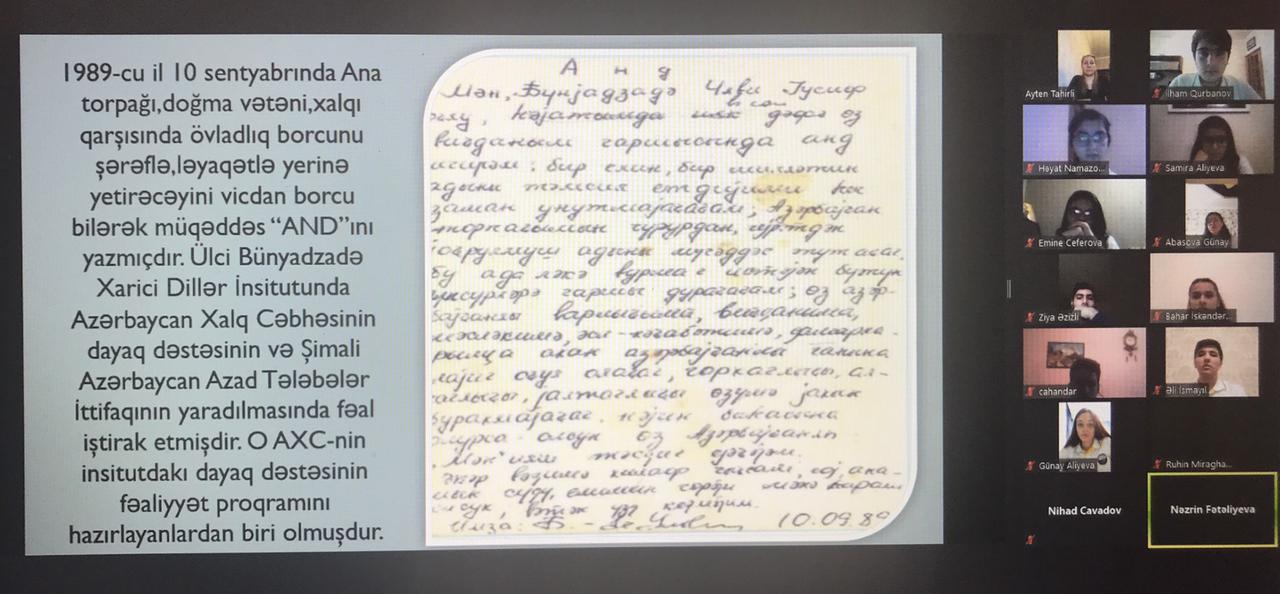 1989-cu il 10 sentyabrında Ana
torpağı,doğma vətəni,xalqı
qarşısında övladlıq borcunu
şərəflə,ləyaqətlə yerinə
yetirəcəyini vicdan borcu
bilərək müqəddəs “AND”ını
yazmıçdır. Ülci Bünyadzadə
Xarici Dillər İnsitutunda
Azərbaycan Xalq Cəbhəsinin
dayaq dəstəsinin və Şimali
Azərbaycan Azad Tələbələr
İttifaqının yaradılmasında fəal
iştirak etmişdir. O AXC-nin
insitutdakı dayaq dəstəsinin
fəaliyyət proqramını
hazırlayanlardan biri olmuşdur.
Анд
Мән, Бунјадзадә Үлви Јусиф
һәјатымда илк дәфә өз
виҹданым гаршысында анд
ичирәм: бир елин, бир милләтин
адыны тәмсил етдијими һеч
заман унутмајаҹағам; Азәрбајҹан
адыны мүгәддәс тутаҹағ,
бу ада ләкә вурмаг истәјән бүтүн
гаршы дураҹағам; өз азәр-
байҹанлы варлығыма, виҹданыма,
ахан азәрбајҹанлы ганына
лајиг оғул олаҹаг, горхаглығы, ал-
чаглығы, јалтаглығы өзүмә јахын
бурахмајаҹаг. Нәјин баһасына
олурса олсун өз Азәрбајҹанлы
10.09.89
Ayten Tahirli
Ilham Qurbanov
Həyat Namazo...
Samira Aliyeva
Emine Ceferova
Abasova Günay
Ziya Əzizli
Bahar İskəndər...
cahandar
Əli İsmayıl
Günay Aliyeva
Ruhin Miragha...
Nihad Cavadov
Nəzrin Fətəliyeva